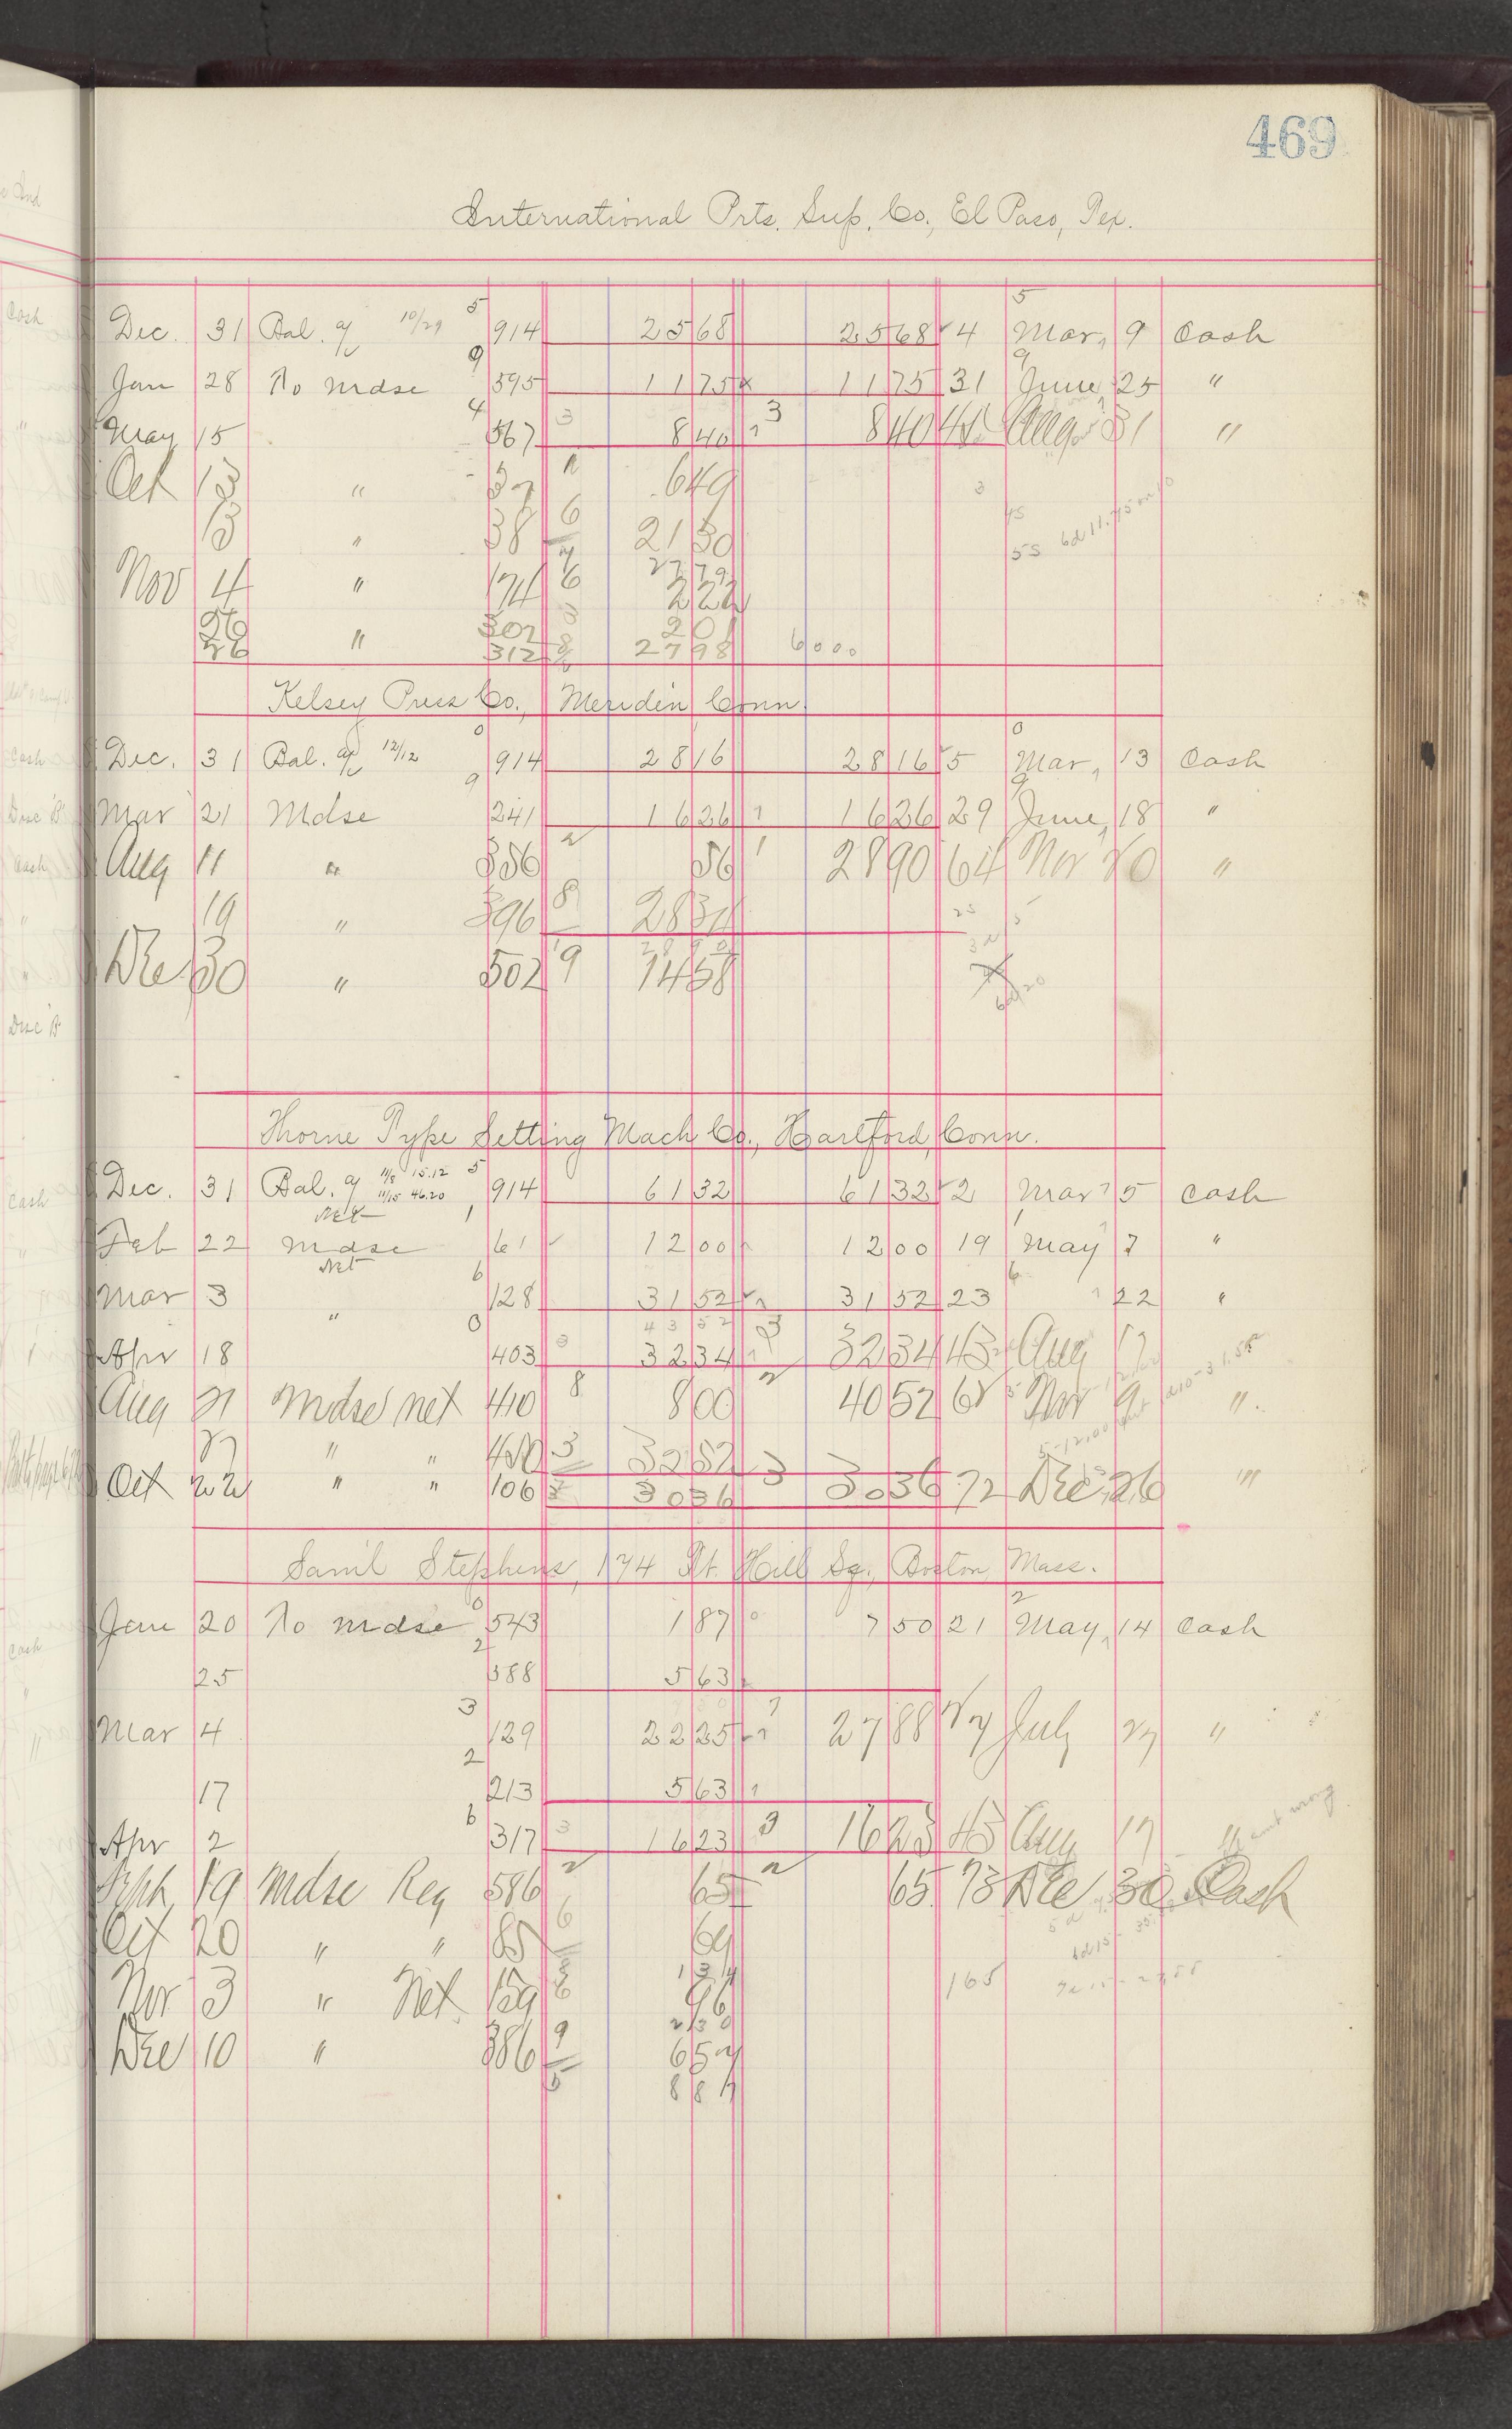 469
International Prts. Sup. Co., El Paso, Tex.
Dec. 31 Bal. a/c 10/29 5 914 25 68 25 68 4 5 Mar, 9 Cash
Jan 28 To Mdse 9 595 11 75 11 75 31 9 June, 25 "
May 15 4 567 3 8 40 3 8 40 Aug 31 "
Oct 13 " 37 6 49
13 " 38 6 21 30
27 79
Nov 4 " 174 6 2 22
26 302 2 01
26 " 312 27 98 60 00
Kelsey Press Co., Meriden Conn.
Dec. 31 Bal. a/c 12/12 0 914 28 16 28 16 5 0 Mar, 13 Cash
Mar 21 Mdse 9 241 16 26 16 26 29 9 June, 18 "
Aug 11 " 336 2 56 1 28 90 64 Nov 20 "
19 " 396 8 28 34
28 90
Dec 30 " 502 9 14 58
Thorne Type Setting Mach Co., Hartford, Conn.
Dec. 31 Bal. a/c 11/8 15.12 5 914 61 32 61 32 2 Mar 5 Cash
11/15 46.20
Net
Feb 22 Mdse 1 61 12 00 12 00 19 1 May 7 "
Net
Mar 3 " 6 128 31 52 31 52 23 6 22 "
43 52
Apr 18 0 403 3 32 34 3 32 34 43 Aug 17
Aug 21 Mdse net 410 8 8 00 2 40 52 68 Nov 9 "
27 " " 450 3 32 52
Oct 22 " " 106 3 30 36 3 30 36 72 Dec 26 "
Saml Stephens, 174 Ft. Hill Sq., Boston, Mass.
Jan 20 To Mdse 0 543 1 87 7 50 21 2 May, 14 Cash
25 2 588 5 63
Mar 4 3 129 22 25 7 27 88 July 27 "
17 2 213 5 63
Apr 2 6 317 3 16 23 3 16 23 43 Aug 17 "
Sept 19 Mdse Reg 586 2 65 2 65 73 Dec 30 Cash
Oct 20 " " 85 6 69
1 34
Nov 3 " Net 159 6 96
2 30
165
Dec 10 " 386 9 6 57
8 87